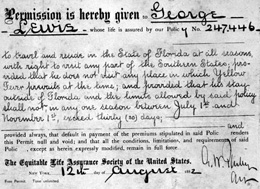 Permission is hereby given to George
Lewis whose life is assured by our Policy No 247.446.
to travel and reside in the State of Florida at all seasons
with right to visit any part of the Southern States, pro-
vided that he does not visit any place in which Yellow
Fever prevails at the time; and provided that his stay
outside of Florida and the limits allowed by said policy
shall not in any one season between July 1st and
November 1st, exceed thirty (30) days;
and
provided always, that default in payment of the premiums stipulated in said Policy renders
this Permit null and void; and that all the conditions, limitations, and requirements of said Policy
except as herein expressly modified, remain in full force.
The Equitable Life Assurance Society of the United States.
New York, 12th day of August